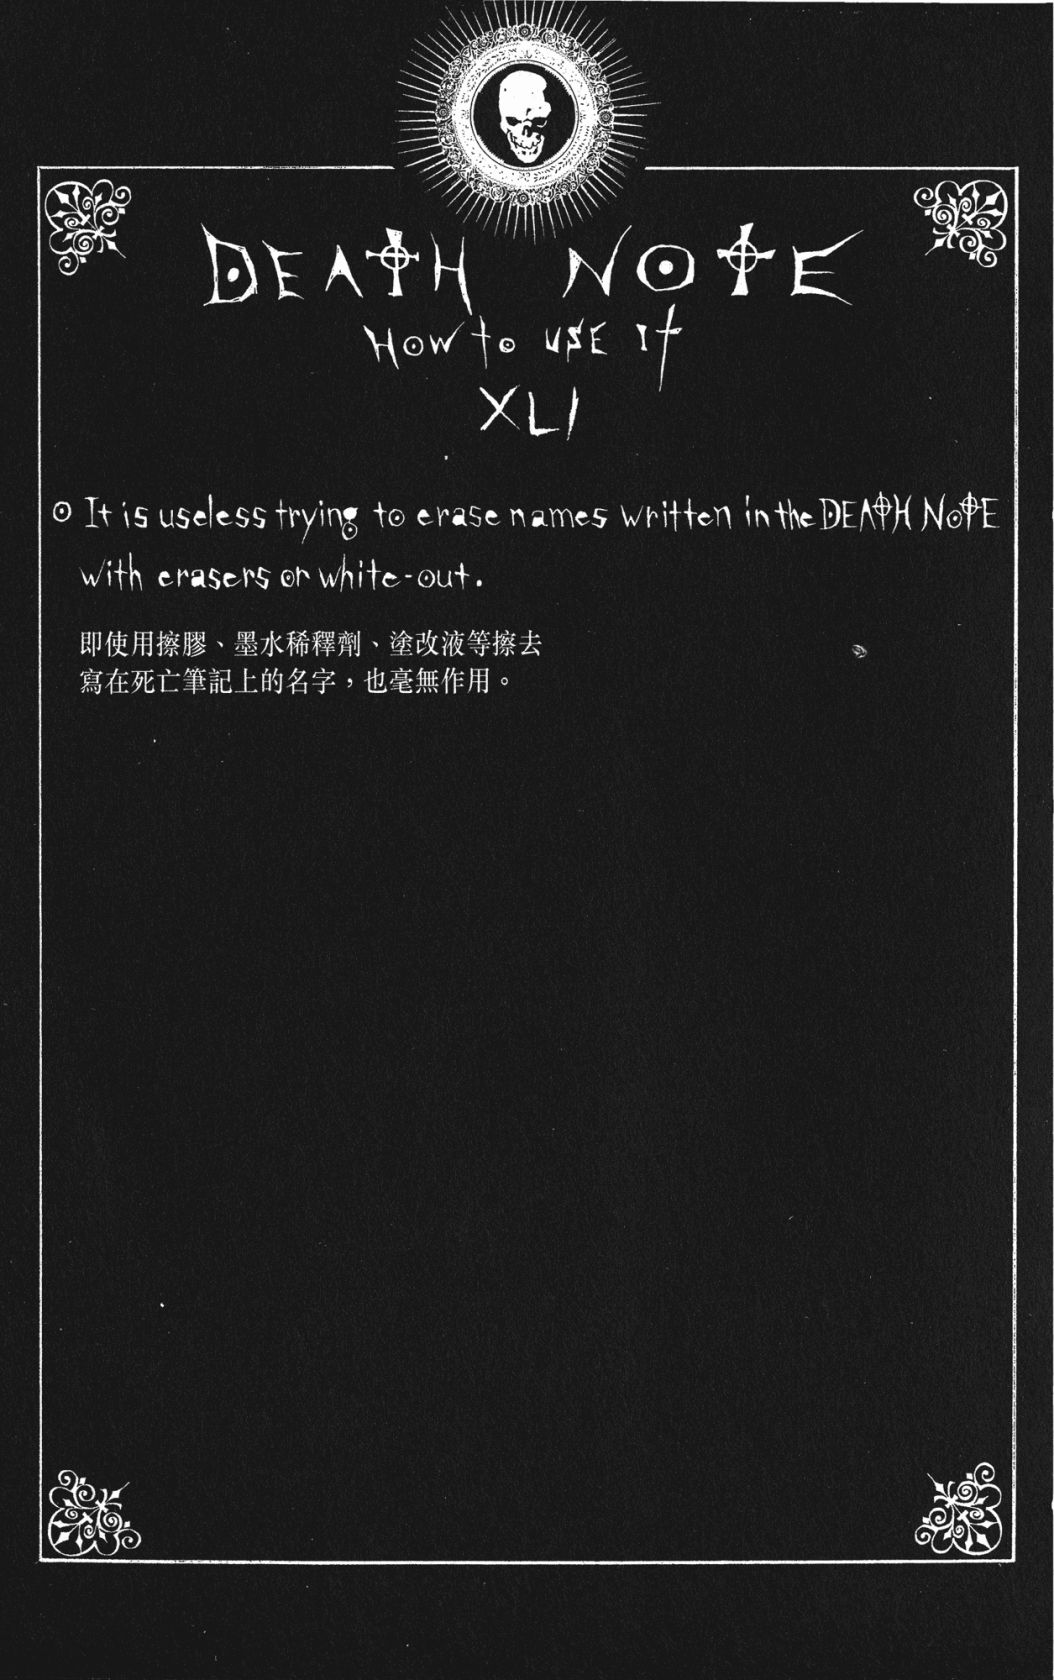 DEATH NOTE
HOW to USE It
XLI
It is useless trying to erase names written in the DEATH NOTE
with erasers or white-out.
即使用擦膠、墨水稀釋劑、塗改液等擦去
寫在死亡筆記上的名字，也毫無作用。